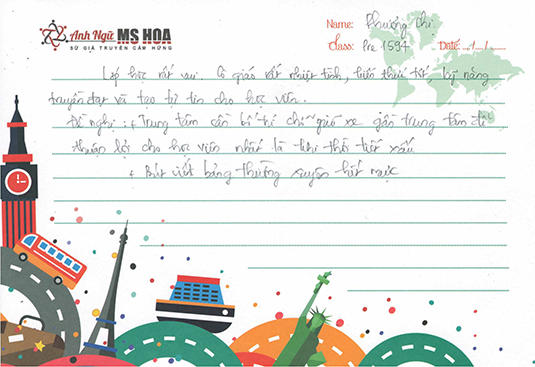 Anh Ngữ MS HOA
SỨ GIẢ TRUYỀN CẢM HỨNG
Name: Phương Chi
Class: Pre 1594 Date: .../.../...
Lớp học rất vui. Cô giáo rất nhiệt tình, kiến thức tốt, kỹ năng
truyền đạt và tạo tự tin cho học viên.
Đề nghị: + Trung tâm cần bố trí chỗ giữ xe gần trung tâm để
thuận lợi cho học viên nhất là khi thời tiết xấu
+ Bút viết bảng thường xuyên hết mực